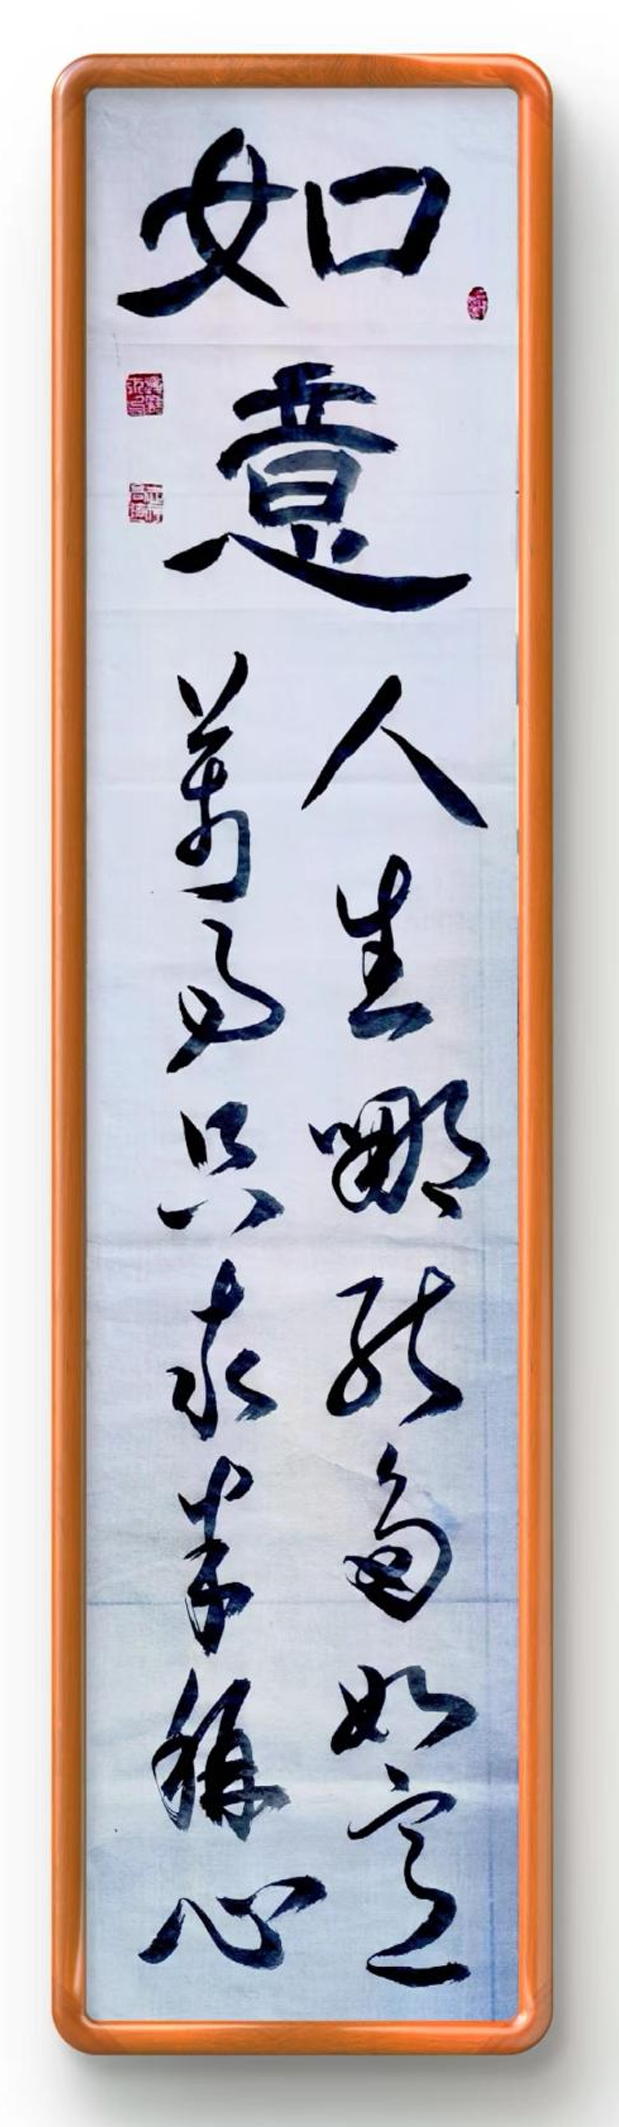 如意
人生哪能多如意
萬事只求半稱心